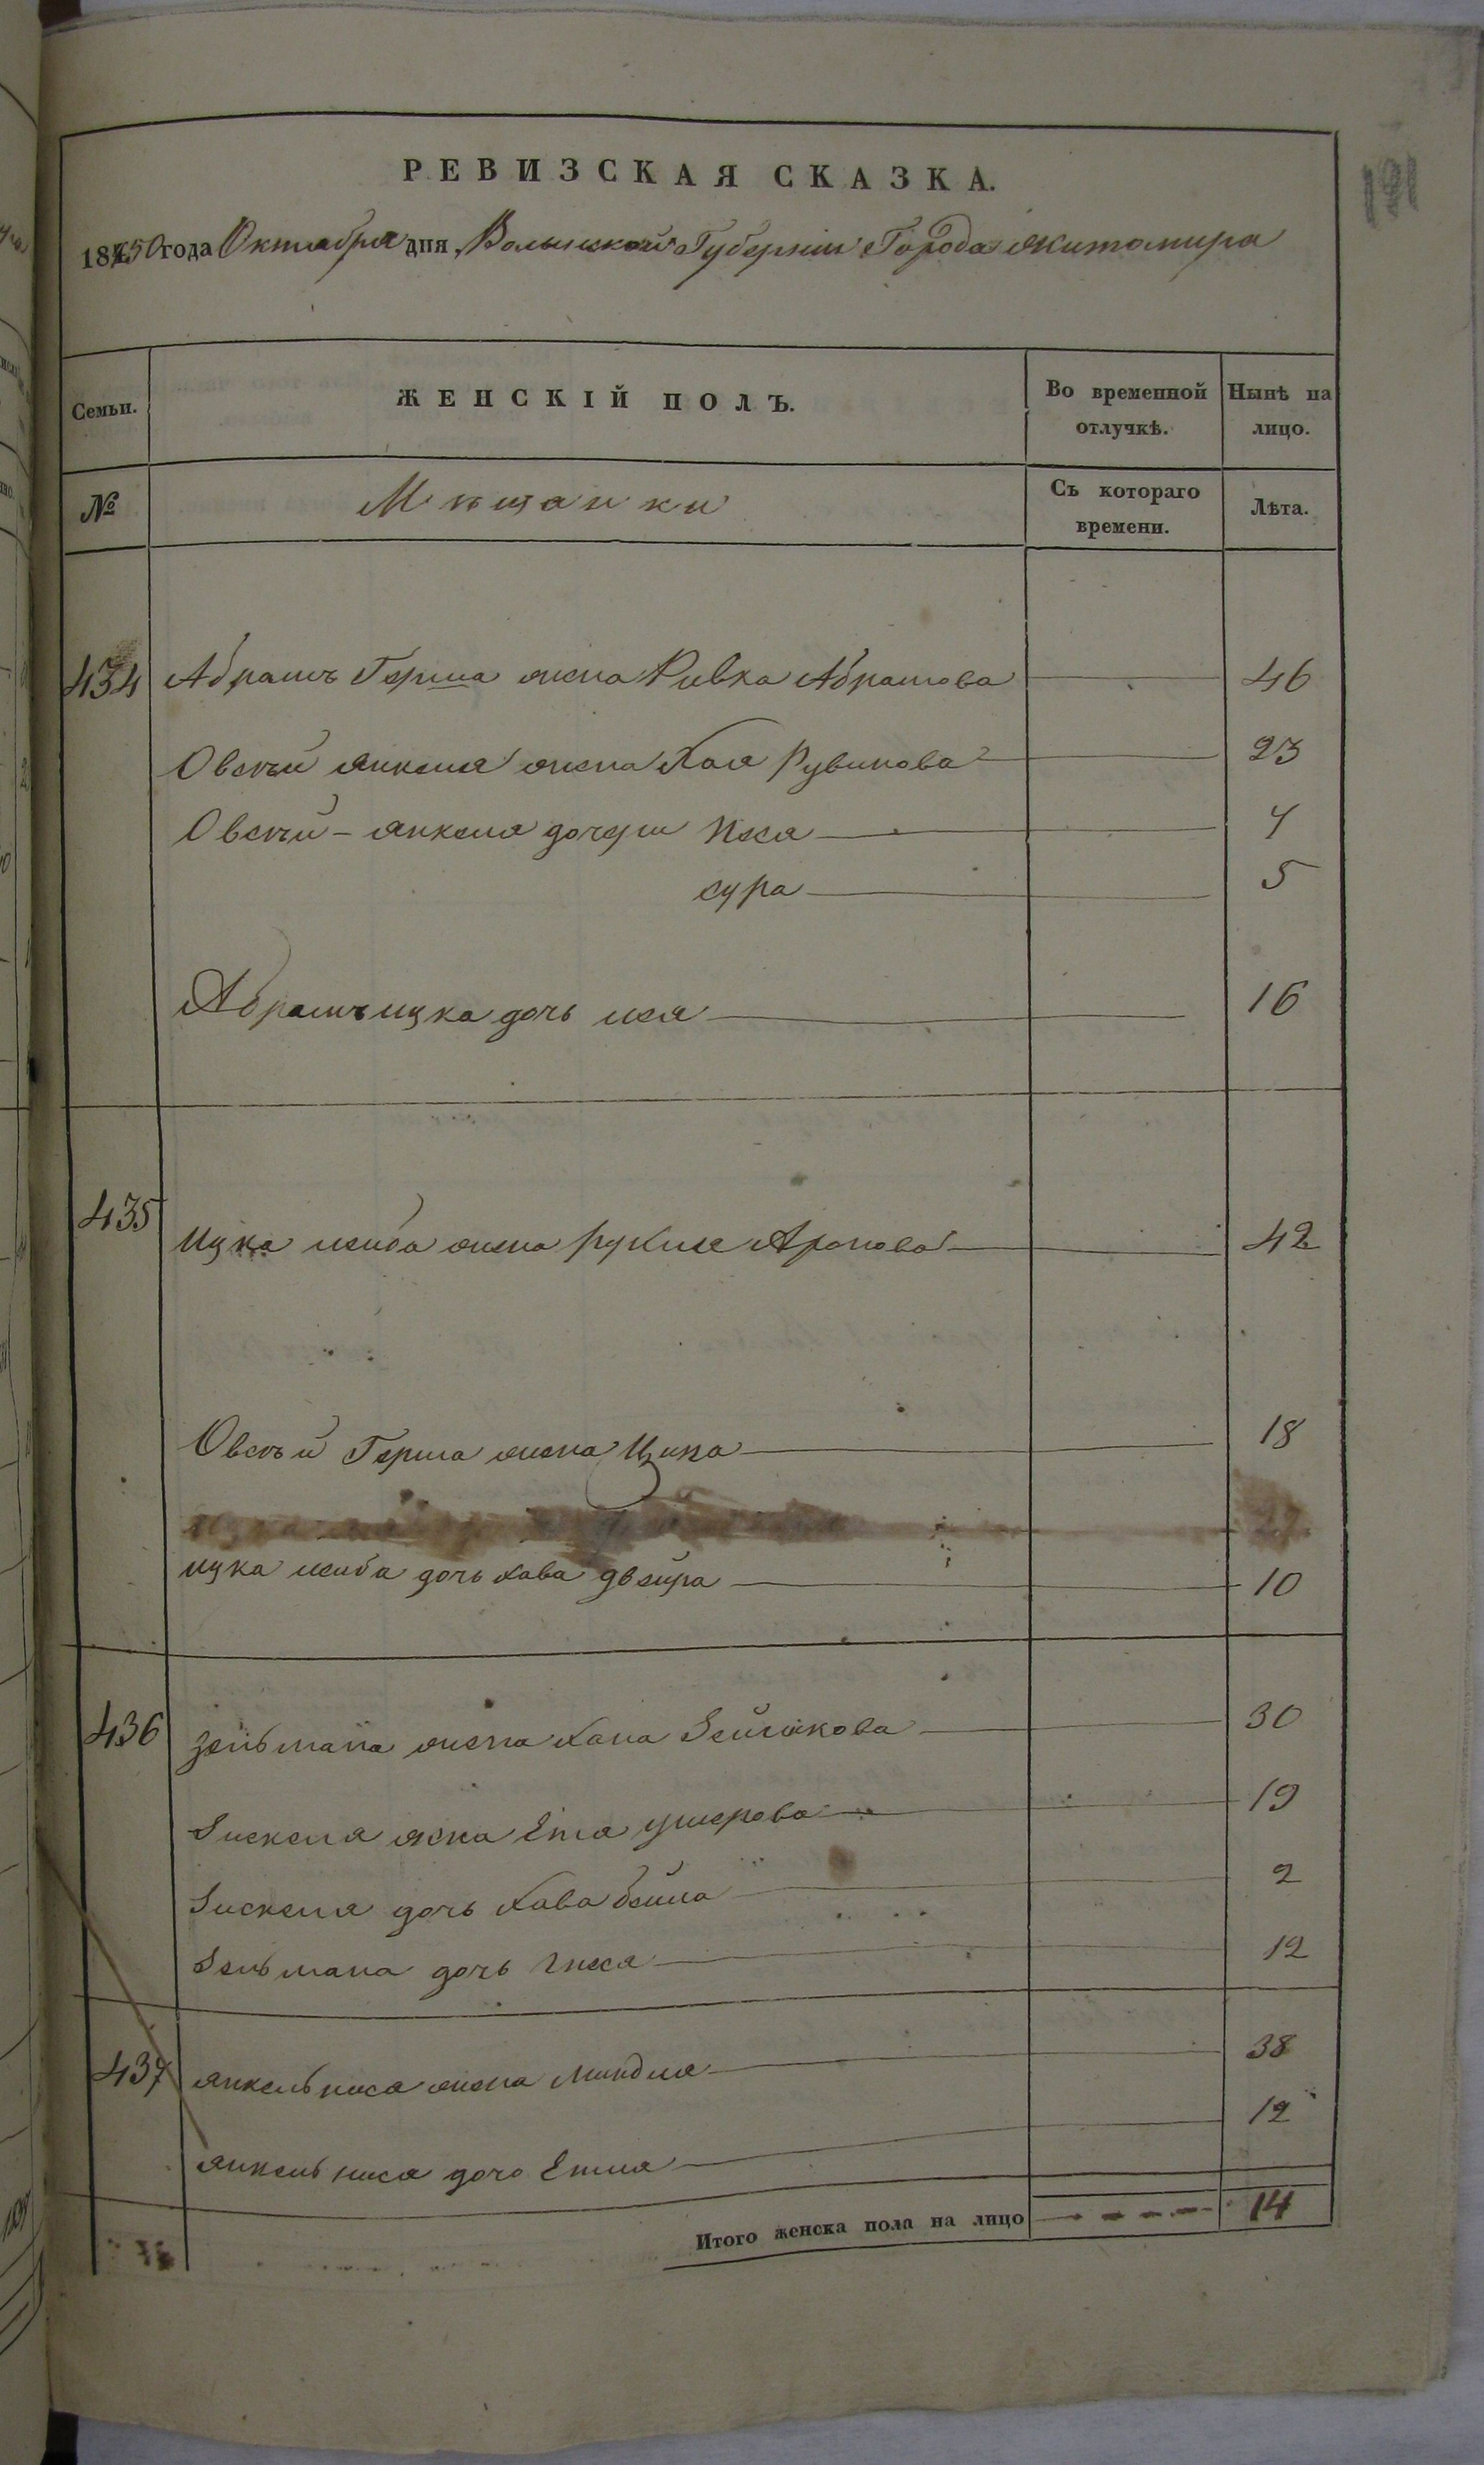 РЕВИЗСКАЯ СКАЗКА.
1850 года Октября дня Волынской Губерніи Города Житомира
Семьи. ЖЕНСКІЙ ПОЛЪ. Во временной отлучкѣ. Нынѣ на лицо.
№ Мѣщанки Съ котораго времени. Лѣта.
434 Абрамъ Герша жена Ривка Абрамова 46
Овсѣй Янкеля жена Хая Рувинова 23
Овсѣй - Янкеля дочери Песя 7
сура 5
Абрамъ ицка дочь ися 16
435 Ицка лейба жена рухля Аронова 42
Овсѣй Герша жена Ципа 18
ицка лейба дочь хава двейра 10
436 Зельмана жена хана Зейликова 30
Зискеля жена Ета ушерова 19
Зискеля дочь хава бейла 2
Зельмана дочь гися 12
437 Янкель жена Миндля 38
Янкель дочь Етля 12
Итого женска пола на лицо 14